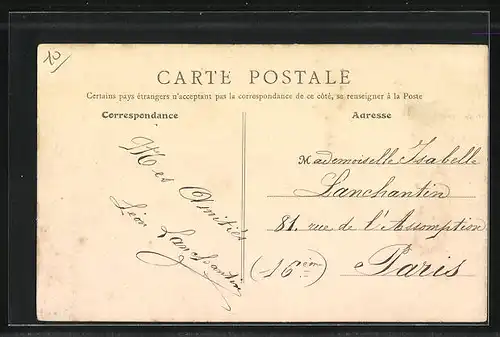 10
CARTE POSTALE
Certains pays étrangers n'acceptant pas la correspondance de ce côté, se renseigner à la Poste
Correspondance
Mes Amitiés
Léon Lanchantin
Adresse
Mademoiselle Isabelle
Lanchantin
81. rue de l'Assomption
Paris
(16ème)